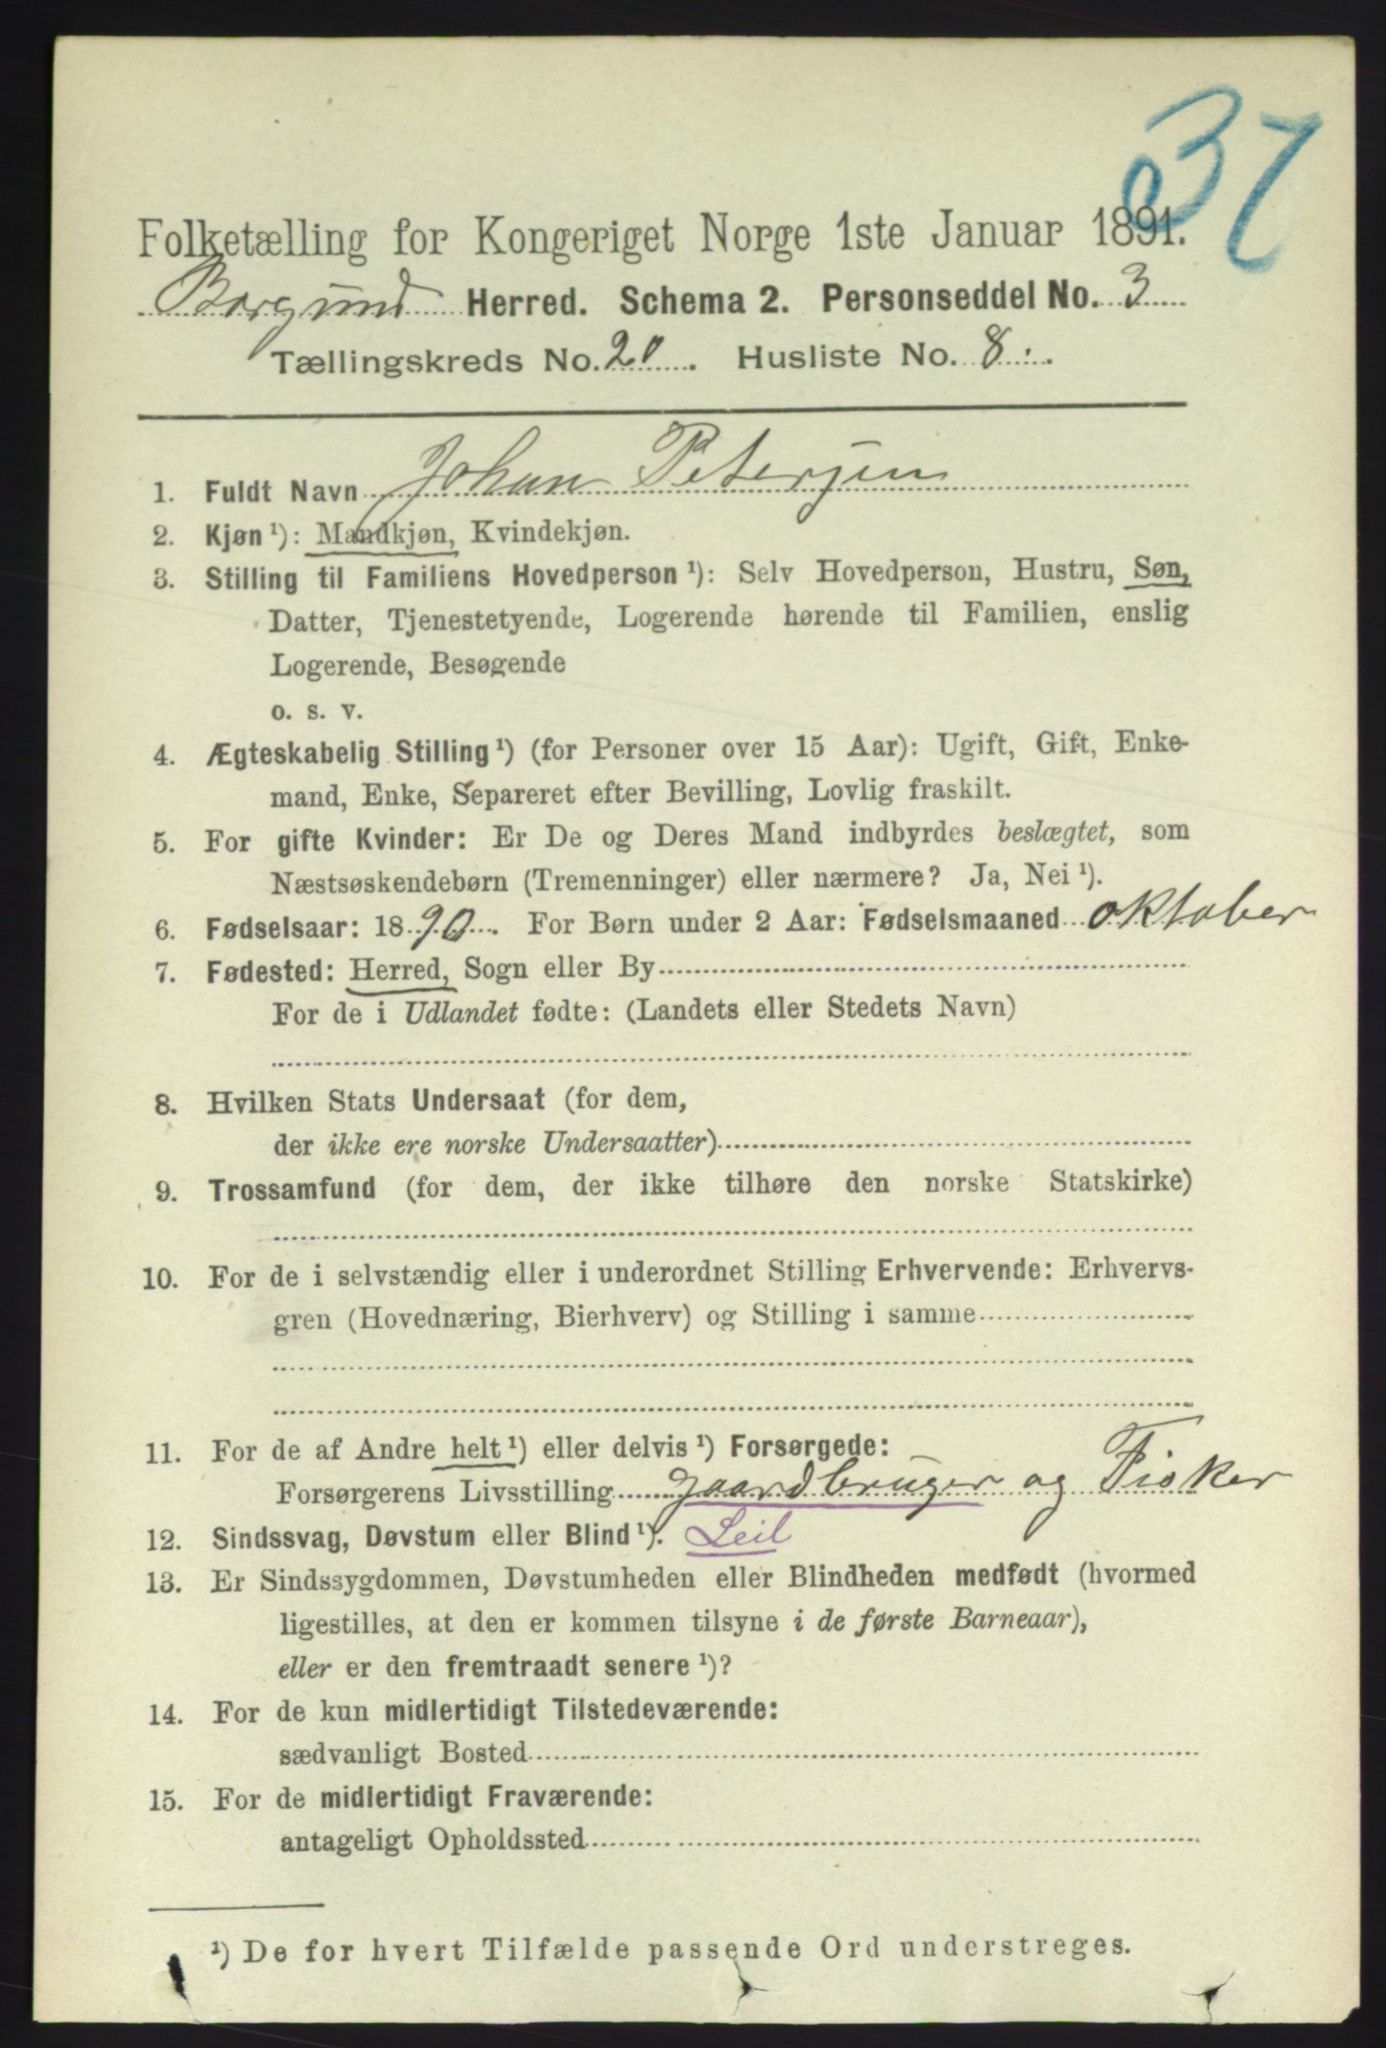 37
Folketælling for Kongeriget Norge 1ste Januar 1891.
Borgund Herred. Schema 2. Personseddel No. 3
Tællingskreds No. 20. Husliste No. 8.
1. Fuldt Navn Johan Petersen
2. Kjøn ¹): Mandkjøn, Kvindekjøn.
3. Stilling til Familiens Hovedperson ¹): Selv Hovedperson, Hustru, Søn,
Datter, Tjenestetyende, Logerende hørende til Familien, enslig
Logerende, Besøgende
o. s. v.
4. Ægteskabelig Stilling ¹) (for Personer over 15 Aar): Ugift, Gift, Enke-
mand, Enke, Separeret efter Bevilling, Lovlig fraskilt.
5. For gifte Kvinder: Er De og Deres Mand indbyrdes beslægtet, som
Næstsøskendebørn (Tremenninger) eller nærmere? Ja, Nei ¹).
6. Fødselsaar: 1890. For Børn under 2 Aar: Fødselsmaaned oktober
7. Fødested: Herred, Sogn eller By
For de i Udlandet fødte: (Landets eller Stedets Navn)
8. Hvilken Stats Undersaat (for dem,
der ikke ere norske Undersaatter)
9. Trossamfund (for dem, der ikke tilhøre den norske Statskirke)
10. For de i selvstændig eller i underordnet Stilling Erhvervende: Erhvervs-
gren (Hovednæring, Bierhverv) og Stilling i samme
11. For de af Andre helt ¹) eller delvis ¹) Forsørgede:
Forsørgerens Livsstilling gaardbruger og Fisker
12. Sindssvag, Døvstum eller Blind ¹). Leil
13. Er Sindssygdommen, Døvstumheden eller Blindheden medfødt (hvormed
ligestilles, at den er kommen tilsyne i de første Barneaar),
eller er den fremtraadt senere ¹)?
14. For de kun midlertidigt Tilstedeværende:
sædvanligt Bosted
15. For de midlertidigt Fraværende:
antageligt Opholdssted
¹) De for hvert Tilfælde passende Ord understreges.